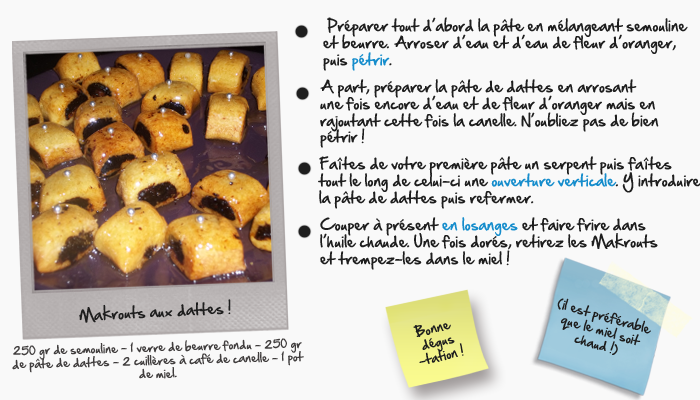 Préparer tout d'abord la pâte en mélangeant semouline
et beurre. Arroser d'eau et d'eau de fleur d'oranger,
puis pétrir.
A part, préparer la pâte de dattes en arrosant
une fois encore d'eau et de fleur d'oranger mais en
rajoutant cette fois la canelle. N'oubliez pas de bien
pétrir !
Faîtes de votre première pâte un serpent puis faîtes
tout le long de celui-ci une ouverture verticale. Y introduire
la pâte de dattes puis refermer.
Couper à présent en losanges et faire frire dans
l'huile chaude. Une fois dorés, retirez les Makrouts
et trempez-les dans le miel !
Makrouts aux dattes !
250 gr de semouline - 1 verre de beurre fondu - 250 gr
de pâte de dattes - 2 cuillères à café de canelle - 1 pot
de miel.
Bonne
dégus
-tation !
(il est préférable
que le miel soit
chaud !)